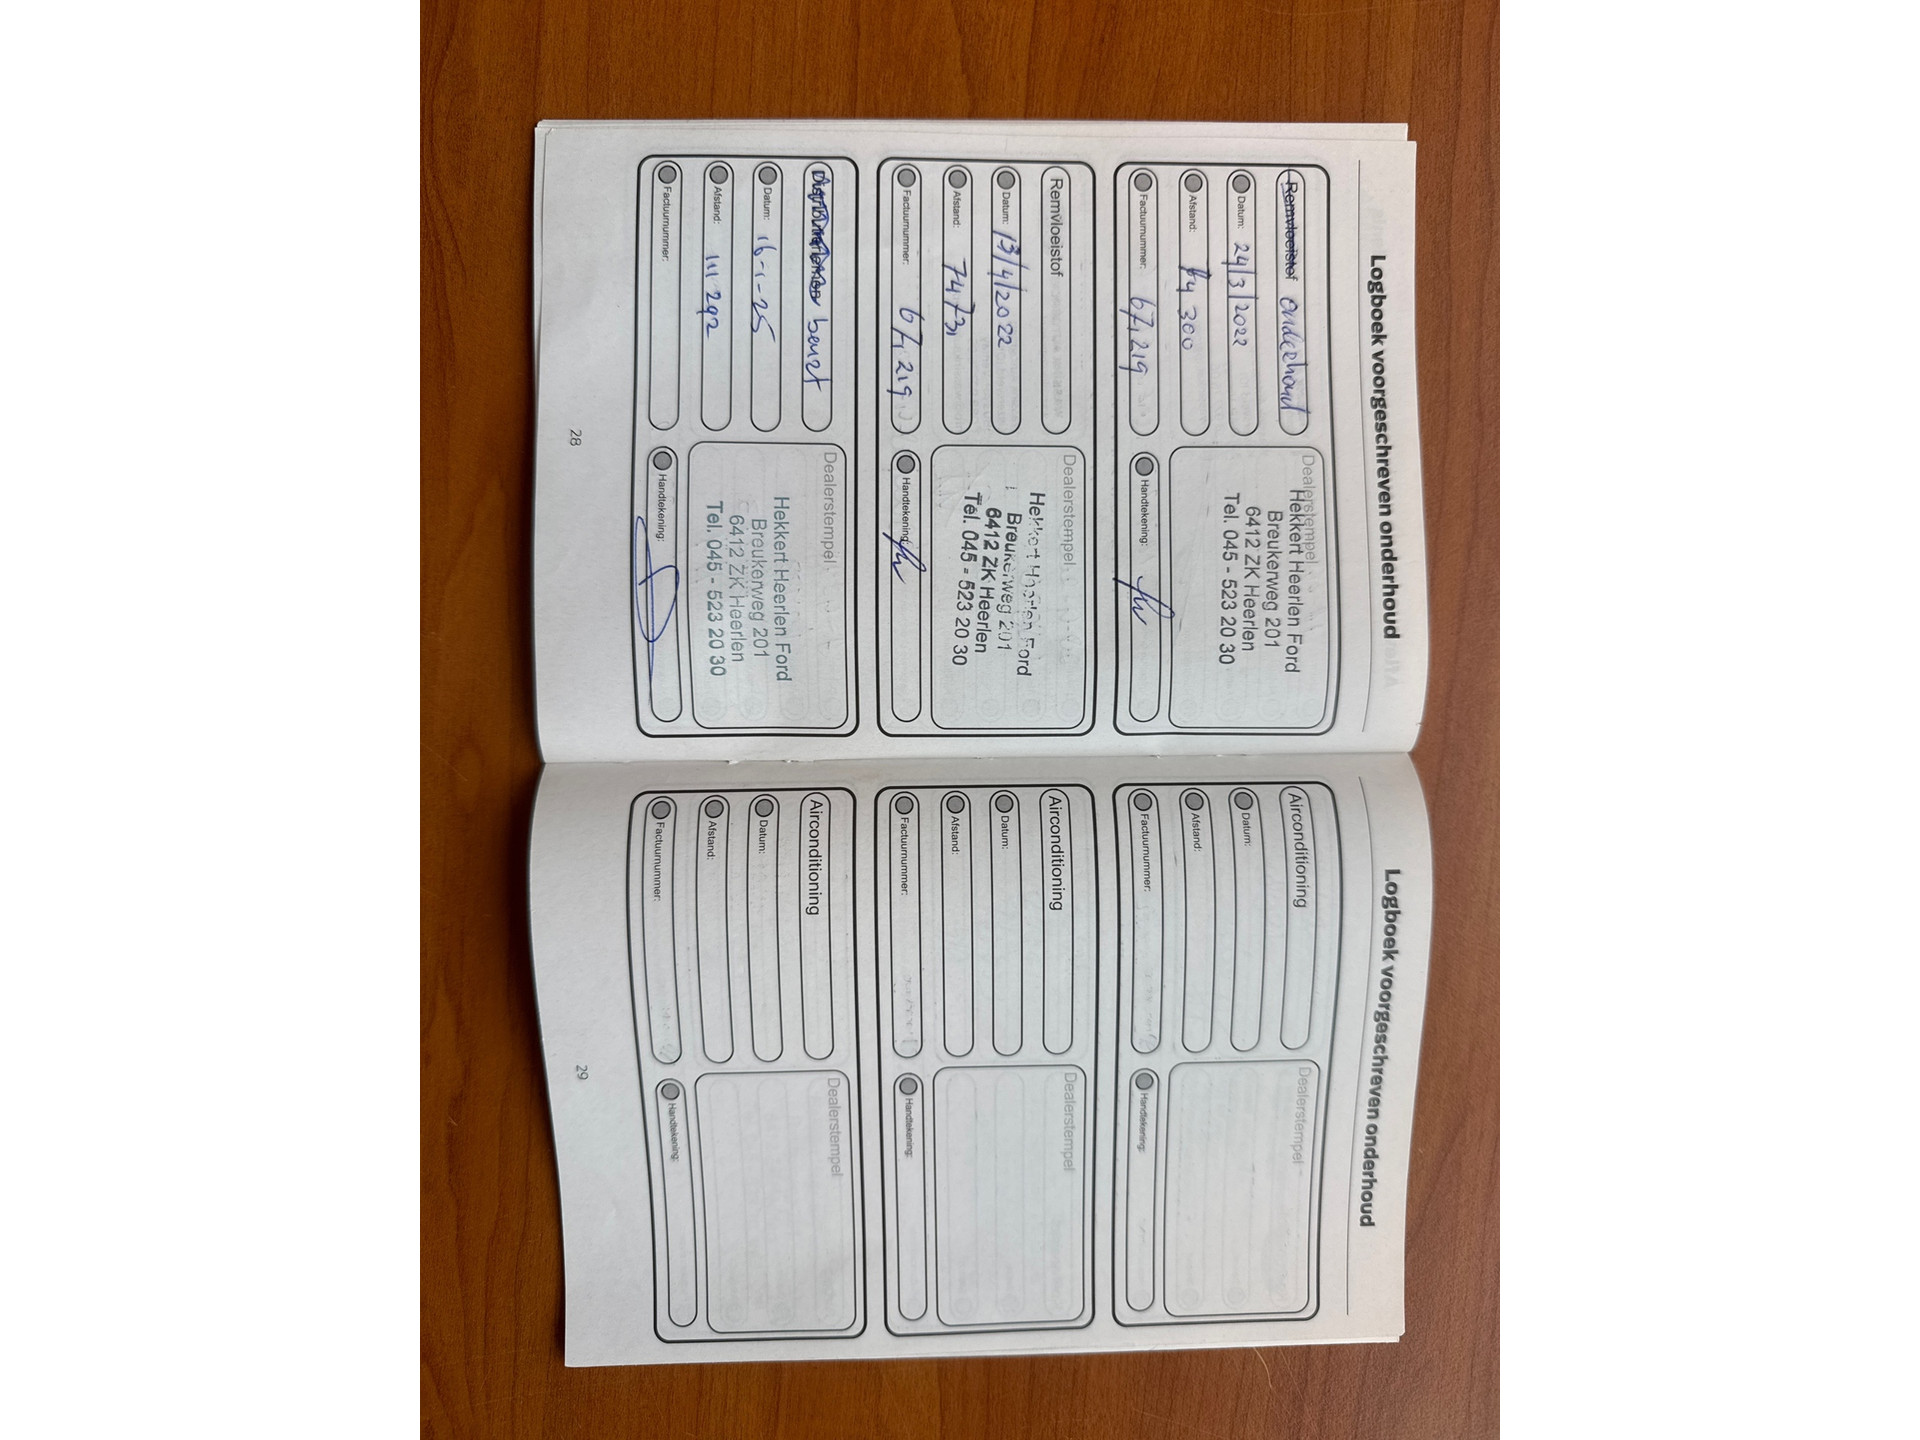 Logboek voorgeschreven onderhoud
Remvloeistof onderhoud
Datum: 24/3/2022
Afstand: 74 300
Factuurnummer: 67,219
Dealerstempel
Hekkert Heerlen Ford
Breukerweg 201
6412 ZK Heerlen
Tel. 045 - 523 20 30
Handtekening:
Remvloeistof
Datum: 13/4/2022
Afstand: 74731
Factuurnummer: 67,219
Dealerstempel
Hekkert Heerlen Ford
Breukerweg 201
6412 ZK Heerlen
Tel. 045 - 523 20 30
Handtekening:
beurt
Datum: 16-1-25
Afstand: 111 292
Factuurnummer:
Dealerstempel
Hekkert Heerlen Ford
Breukerweg 201
6412 ZK Heerlen
Tel. 045 - 523 20 30
Handtekening:
28
Logboek voorgeschreven onderhoud
Airconditioning
Datum:
Afstand:
Factuurnummer:
Dealerstempel
Handtekening:
Airconditioning
Datum:
Afstand:
Factuurnummer:
Dealerstempel
Handtekening:
Airconditioning
Datum:
Afstand:
Factuurnummer:
Dealerstempel
Handtekening:
29